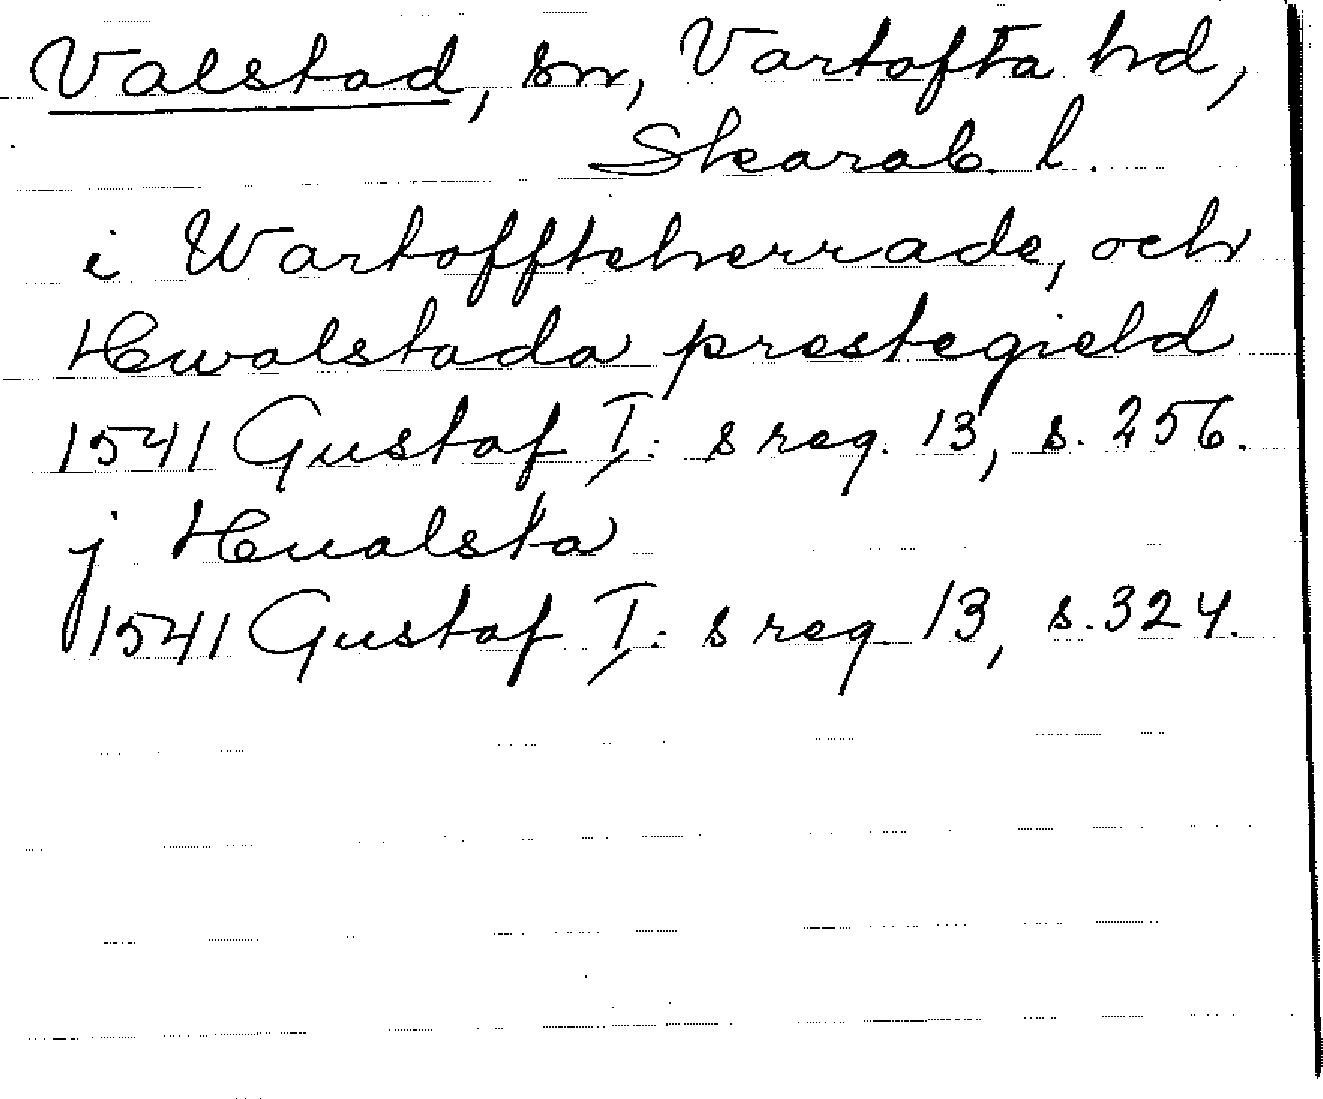 Valstad, sn, Vartofta hd,
Skarab. l.
i Wartoffteherrade, och
Hwalstada prestegield
1541 Gustaf I:s reg. 13, s. 256.
j Hualsta
1541 Gustaf I:s reg 13, s. 324.